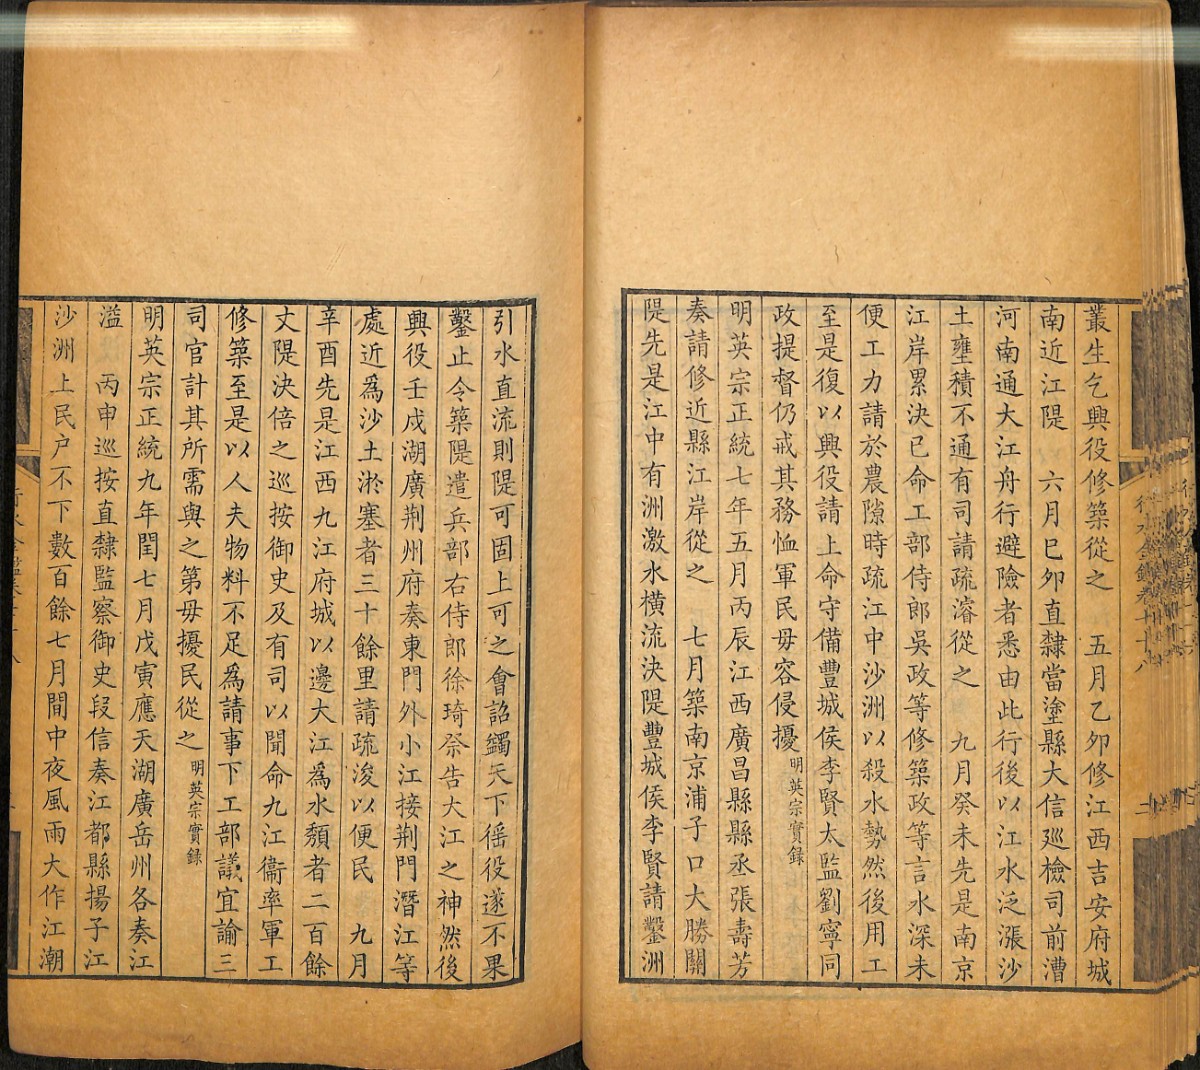 叢生乞興役修築從之　五月乙夘修江西吉安府城
南近江隄　六月巳夘直隸當塗縣大信廵檢司前漕
河南通大江舟行避險者悉由此行後以江水泛漲沙
土壅積不通有司請疏濬從之　九月癸未先是南京
江岸累決已命工部侍郎吳政等修築政等言水深未
便工力請於農隙時疏江中沙洲以殺水勢然後用工
至是復以興役請上命守備豐城侯李賢太監劉寧同
政提督仍戒其務恤軍民毋容侵擾明英宗實録
明英宗正統七年五月丙辰江西廣昌縣縣丞張壽芳
奏請修近縣江岸從之　七月築南京浦子口大勝關
隄先是江中有洲激水橫流決隄豐城侯李賢請鑿洲
引水直流則隄可固上可之會詔蠲天下徭役遂不果
鑿止令築隄遣兵部右侍郎徐琦祭告大江之神然後
興役壬戍湖廣荆州府奏東門外小江接荆門潛江等
處近爲沙土淤塞者三十餘里請疏浚以便民　九月
辛酉先是江西九江府城以邊大江爲水頽者二百餘
丈隄決倍之巡按御史及有司以聞命九江衞率軍工
修築至是以人夫物料不足爲請事下工部議宜諭三
司官計其所需與之第毋擾民從之明英宗實録
明英宗正統九年閏七月戊寅應天湖廣岳州各奏江
溢　丙申巡按直隸監察御史段信奏江都縣揚子江
沙洲上民户不下數百餘七月間中夜風雨大作江潮